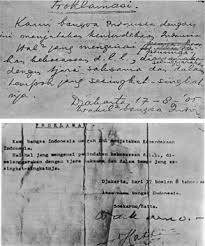 Proklamasi.
Kami bangsa Indonesia dengan
ini menjatakan kemerdekaan Indonesia.
Hal² jang mengenai
kekoeasaan d.l.l.,
dengan tjara saksama dan
tempoh jang sesingkat-singkat
Djakarta 17-8-'05
Wakil² bangsa
P R O K L A M A S I
Kami bangsa Indonesia dengan ini menjatakan Kemerdekaan
Indonesia.
Hal-hal jang mengenai pemindahan kekoeasaan d.l.l., di-
selenggarakan dengan tjara saksama dan dalam tempo jang se-
singkat-singkatnja.
Djakarta, hari 17 boelan 8 tahoen
Atas nama bangsa Indonesia.
Soekarno/Hatta.